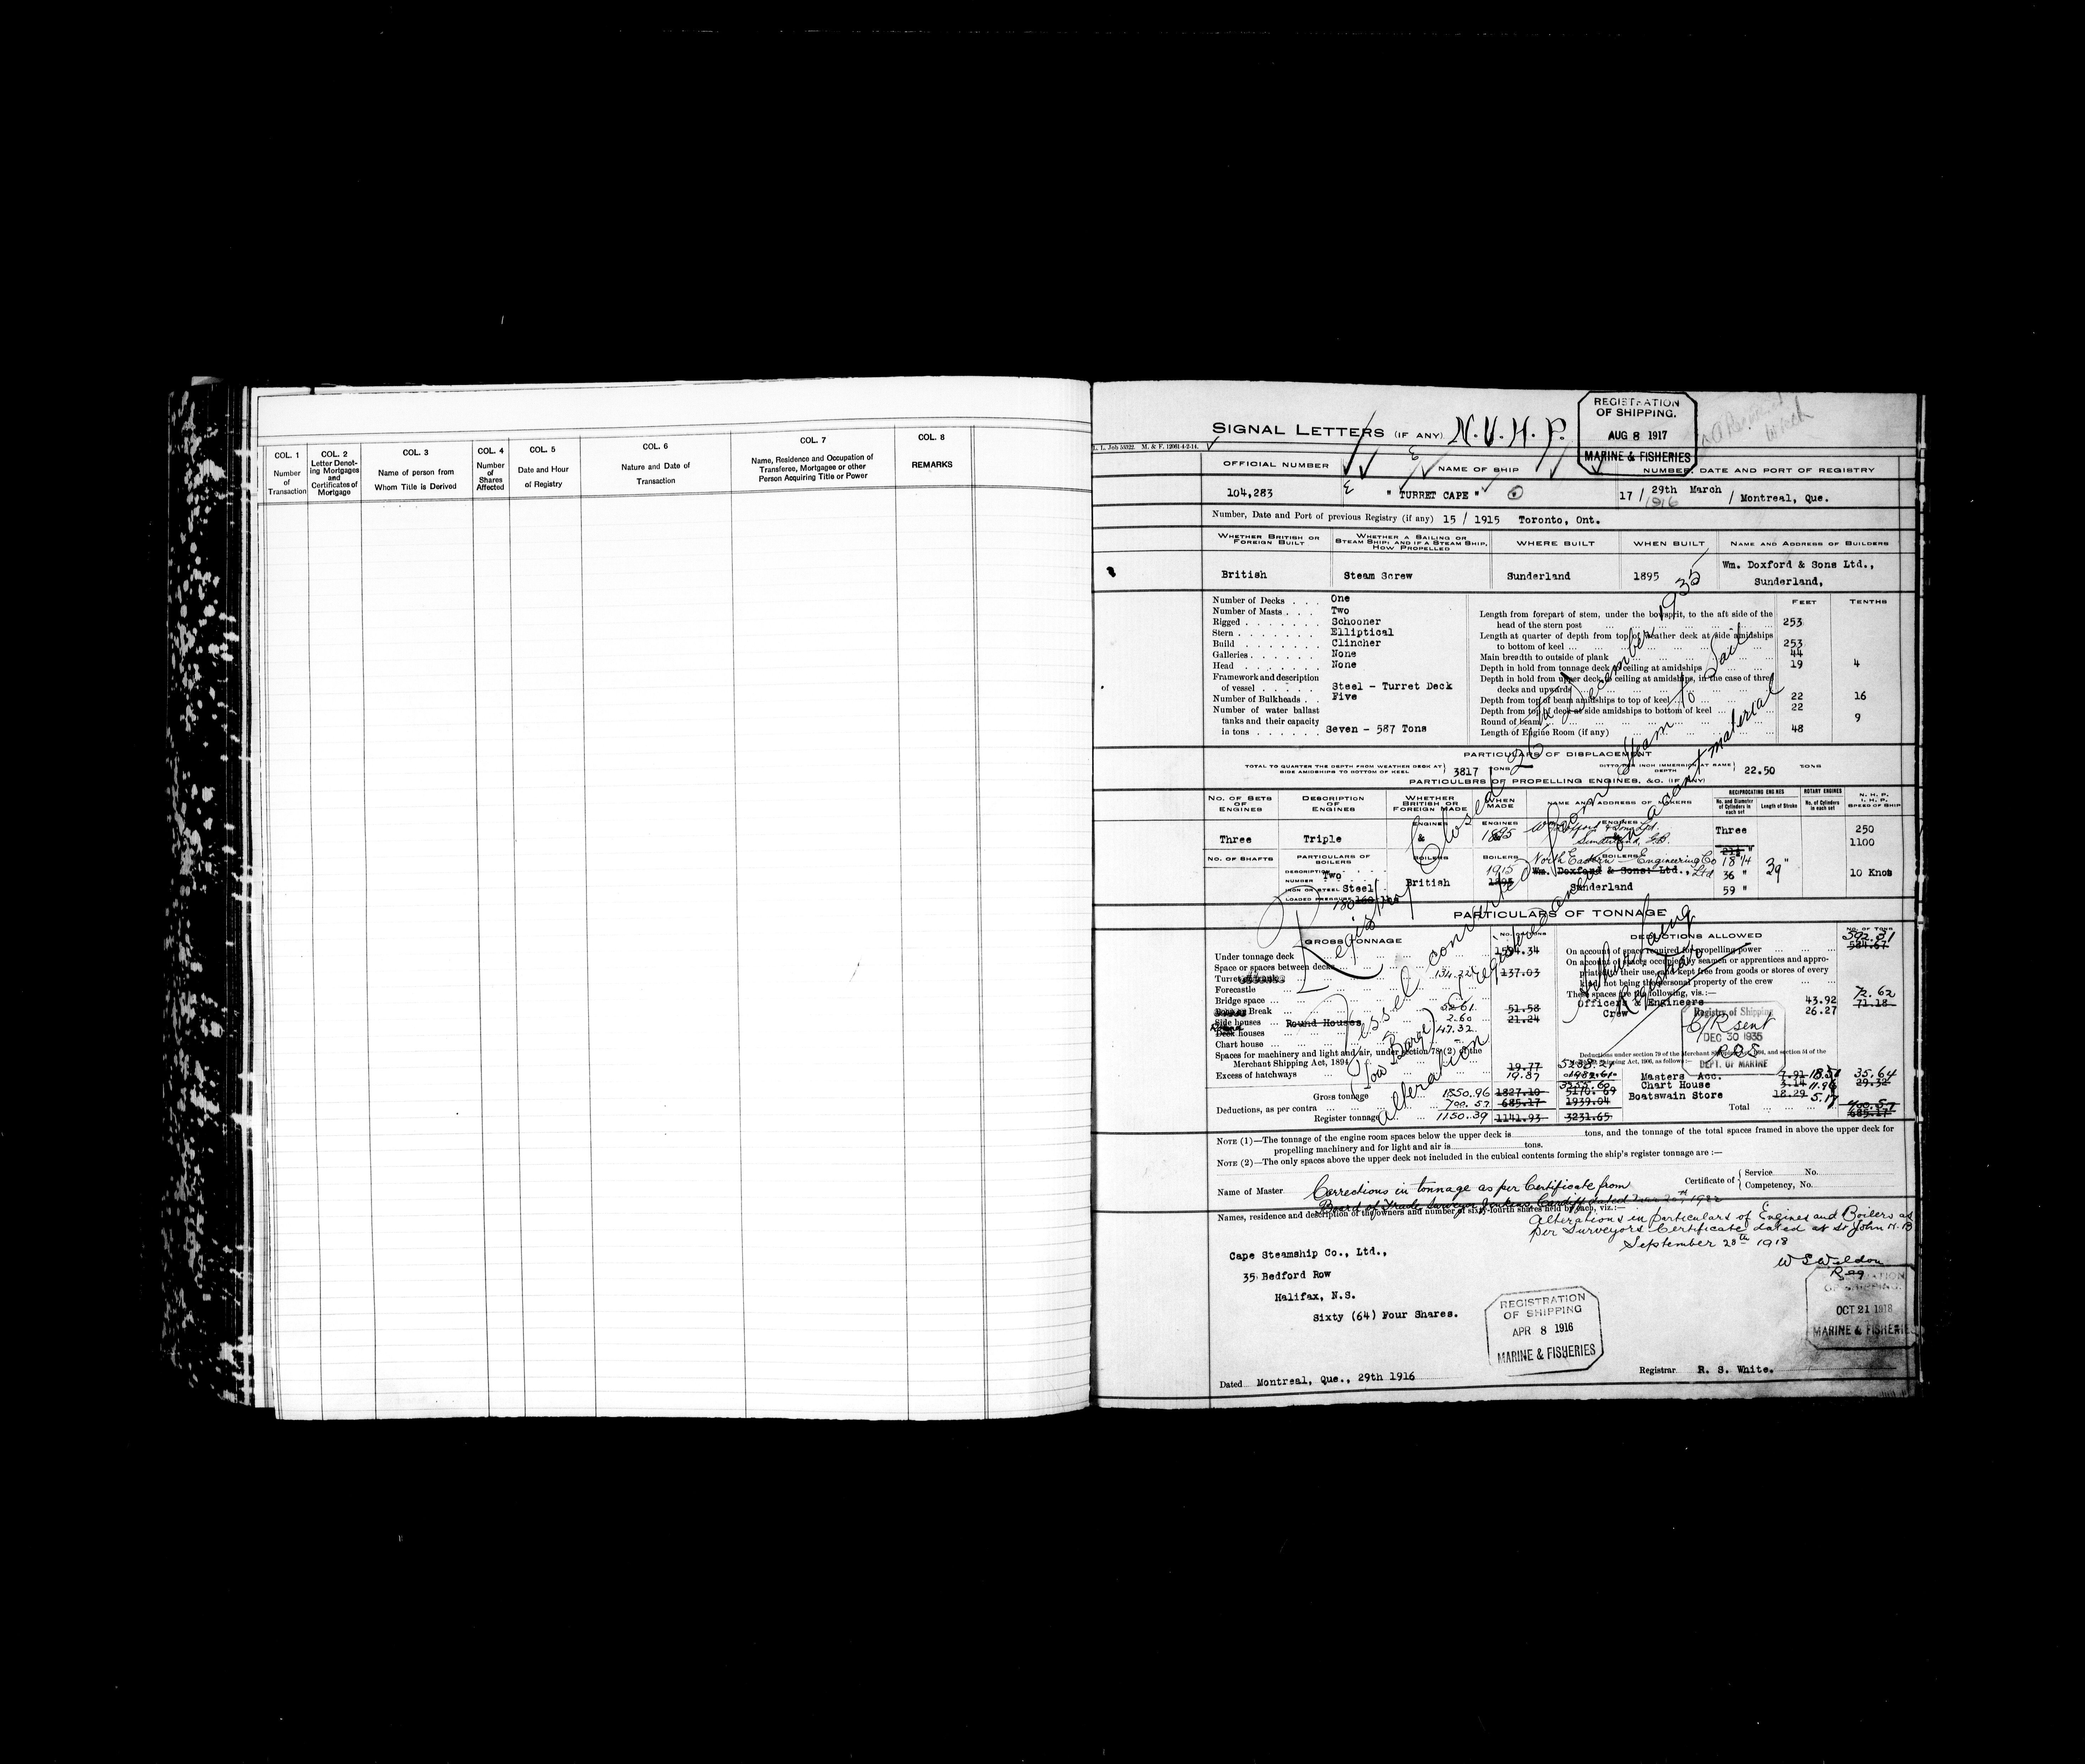 COL. 1
Number
of
Transaction
COL. 2
Letter Denot-
ing Mortgages
and
Certificates of
Mortgage
COL. 3
Name of person from
Whom Title is Derived
COL. 4
Number
of
Shares
Affected
COL. 5
Date and Hour
of Registry
COL. 6
Nature and Date of
Transaction
COL. 7
Name, Residence and Occupation of
Transferee, Mortgagee or other
Person Acquiring Title or Power
COL. 8
REMARKS
SIGNAL LETTERS (IF ANY) N.V.H.P.
REGISTRATION
OF SHIPPING.
AUG 8 1917
MARINE & FISHERIES
OFFICIAL NUMBER
NAME OF SHIP
NUMBER, DATE AND PORT OF REGISTRY
104,283
" TURRET CAPE "
17 / 29th March / Montreal, Que.
1916
Number, Date and Port of previous Registry (if any) 15 / 1915 Toronto, Ont.
WHETHER BRITISH OR
FOREIGN BUILT
WHETHER A SAILING OR
STEAM SHIP; AND IF A STEAM SHIP,
HOW PROPELLED
WHERE BUILT
WHEN BUILT
NAME AND ADDRESS OF BUILDERS
British
Steam Screw
Sunderland
1895
Wm. Doxford & Sons Ltd.,
Sunderland,
Number of Decks . . . One
Number of Masts . . . Two
Rigged . . . . . . . Schooner
Stern . . . . . . . Elliptical
Build . . . . . . . Clincher
Galleries . . . . . . None
Head . . . . . . . None
Framework and description
of vessel . . . . . Steel - Turret Deck
Number of Bulkheads . . Five
Number of water ballast
tanks and their capacity
in tons . . . . . . Seven - 587 Tons
FEET TENTHS
Length from forepart of stem, under the bowsprit, to the aft side of the
head of the stern post 253
Length at quarter of depth from top of weather deck at side amidships
to bottom of keel 253
Main breadth to outside of plank 44
Depth in hold from tonnage deck to ceiling at amidships 19 4
Depth in hold from upper deck to ceiling at amidships, in the case of three
decks and upwards
Depth from top of beam amidships to top of keel 22 16
Depth from top of deck at side amidships to bottom of keel 22
Round of beam 9
Length of Engine Room (if any) 48
PARTICULARS OF DISPLACEMENT
TOTAL TO QUARTER THE DEPTH FROM WEATHER DECK AT
SIDE AMIDSHIPS TO BOTTOM OF KEEL
3817 TONS
DITTO PER INCH IMMERSION AT SAME
DEPTH
22.50 TONS
PARTICULARS OF PROPELLING ENGINES, &C. (IF ANY)
NO. OF SETS
OF
ENGINES
DESCRIPTION
OF
ENGINES
WHETHER
BRITISH OR
FOREIGN MADE
WHEN
MADE
NAME AND ADDRESS OF MAKERS
RECIPROCATING ENGINES
No. and Diameter
of Cylinders in
each set
Length of Stroke
ROTARY ENGINES
No. of Cylinders
in each set
N. H. P.
I. H. P.
SPEED OF SHIP
Three
Triple
ENGINES
&
BOILERS
British
ENGINES
1895
ENGINES
Wm Doxford & Sons Ltd.
Sunderland, G.B.
Three
250
1100
NO. OF SHAFTS
PARTICULARS OF
BOILERS
DESCRIPTION
NUMBER Two
IRON OR STEEL Steel
LOADED PRESSURE 180
BOILERS
1915
BOILERS
North Eastern Engineering Co
Wm. Doxford & Sons: Ltd., Ltd
Sunderland
18 1/4
36 "
59 "
39"
10 Knos
PARTICULARS OF TONNAGE
GROSS TONNAGE
NO. OF TONS
DEDUCTIONS ALLOWED
NO. OF TONS
Under tonnage deck 1594.34
Space or spaces between decks
Turret 134.22 137.03
Forecastle
Bridge space
Break 52.61 51.58
Side houses Round Houses 2.60 21.24
Deck houses 47.32
Chart house
Spaces for machinery and light and air, under section 78 (2) of the
Merchant Shipping Act, 1894 19.77
Excess of hatchways 19.87
Gross tonnage 1850.96 1827.10 5170.69
Deductions, as per contra 700.57 685.17 1939.04
Register tonnage 1150.39 1141.93 3231.65
On account of space required for propelling power 592.31 584.67
On account of spaces occupied by seamen or apprentices and appro-
priated to their use, and kept free from goods or stores of every
kind, not being the personal property of the crew
These spaces are the following, viz.:—
Officers & Engineers 43.92 72.62
Crew 26.27 71.18
Registry of Shipping
C/R sent
DEC 30 1935
ROS
DEPT. OF MARINE
Deductions under section 79 of the Merchant Shipping Act, 1894, and section 54 of the
Merchant Shipping Act, 1906, as follows:—
Masters Acc. 7.91 18.51 35.64
Chart House 3.14 11.96 29.32
Boatswain Store 18.29 5.17
Total 700.57
685.17
Registry Closed 26th December 1935
Vessel converted from Steam to Sail
(Tow Barge) & registered anew on account material
alteration
Registrar
NOTE (1)—The tonnage of the engine room spaces below the upper deck is tons, and the tonnage of the total spaces framed in above the upper deck for
propelling machinery and for light and air is tons.
NOTE (2)—The only spaces above the upper deck not included in the cubical contents forming the ship's register tonnage are :—
Name of Master
Certificate of { Service No.
Competency, No.
Corrections in tonnage as per Certificate from
Board of Trade Surveyor Cardiff dated
Names, residence and description of the owners and number of sixty-fourth shares held by each, viz.:—
Alterations in particulars of Engines and Boilers as
per Surveyors Certificate dated at St John N.B
September 20th 1918
W S Weldon
Reg
Cape Steamship Co., Ltd.,
35 Bedford Row
Halifax, N.S.
Sixty (64) Four Shares.
REGISTRATION
OF SHIPPING
APR 8 1916
MARINE & FISHERIES
REGISTRATION
OF SHIPPING.
OCT 21 1918
MARINE & FISHERIES
Dated Montreal, Que., 29th 1916
Registrar R. S. White.